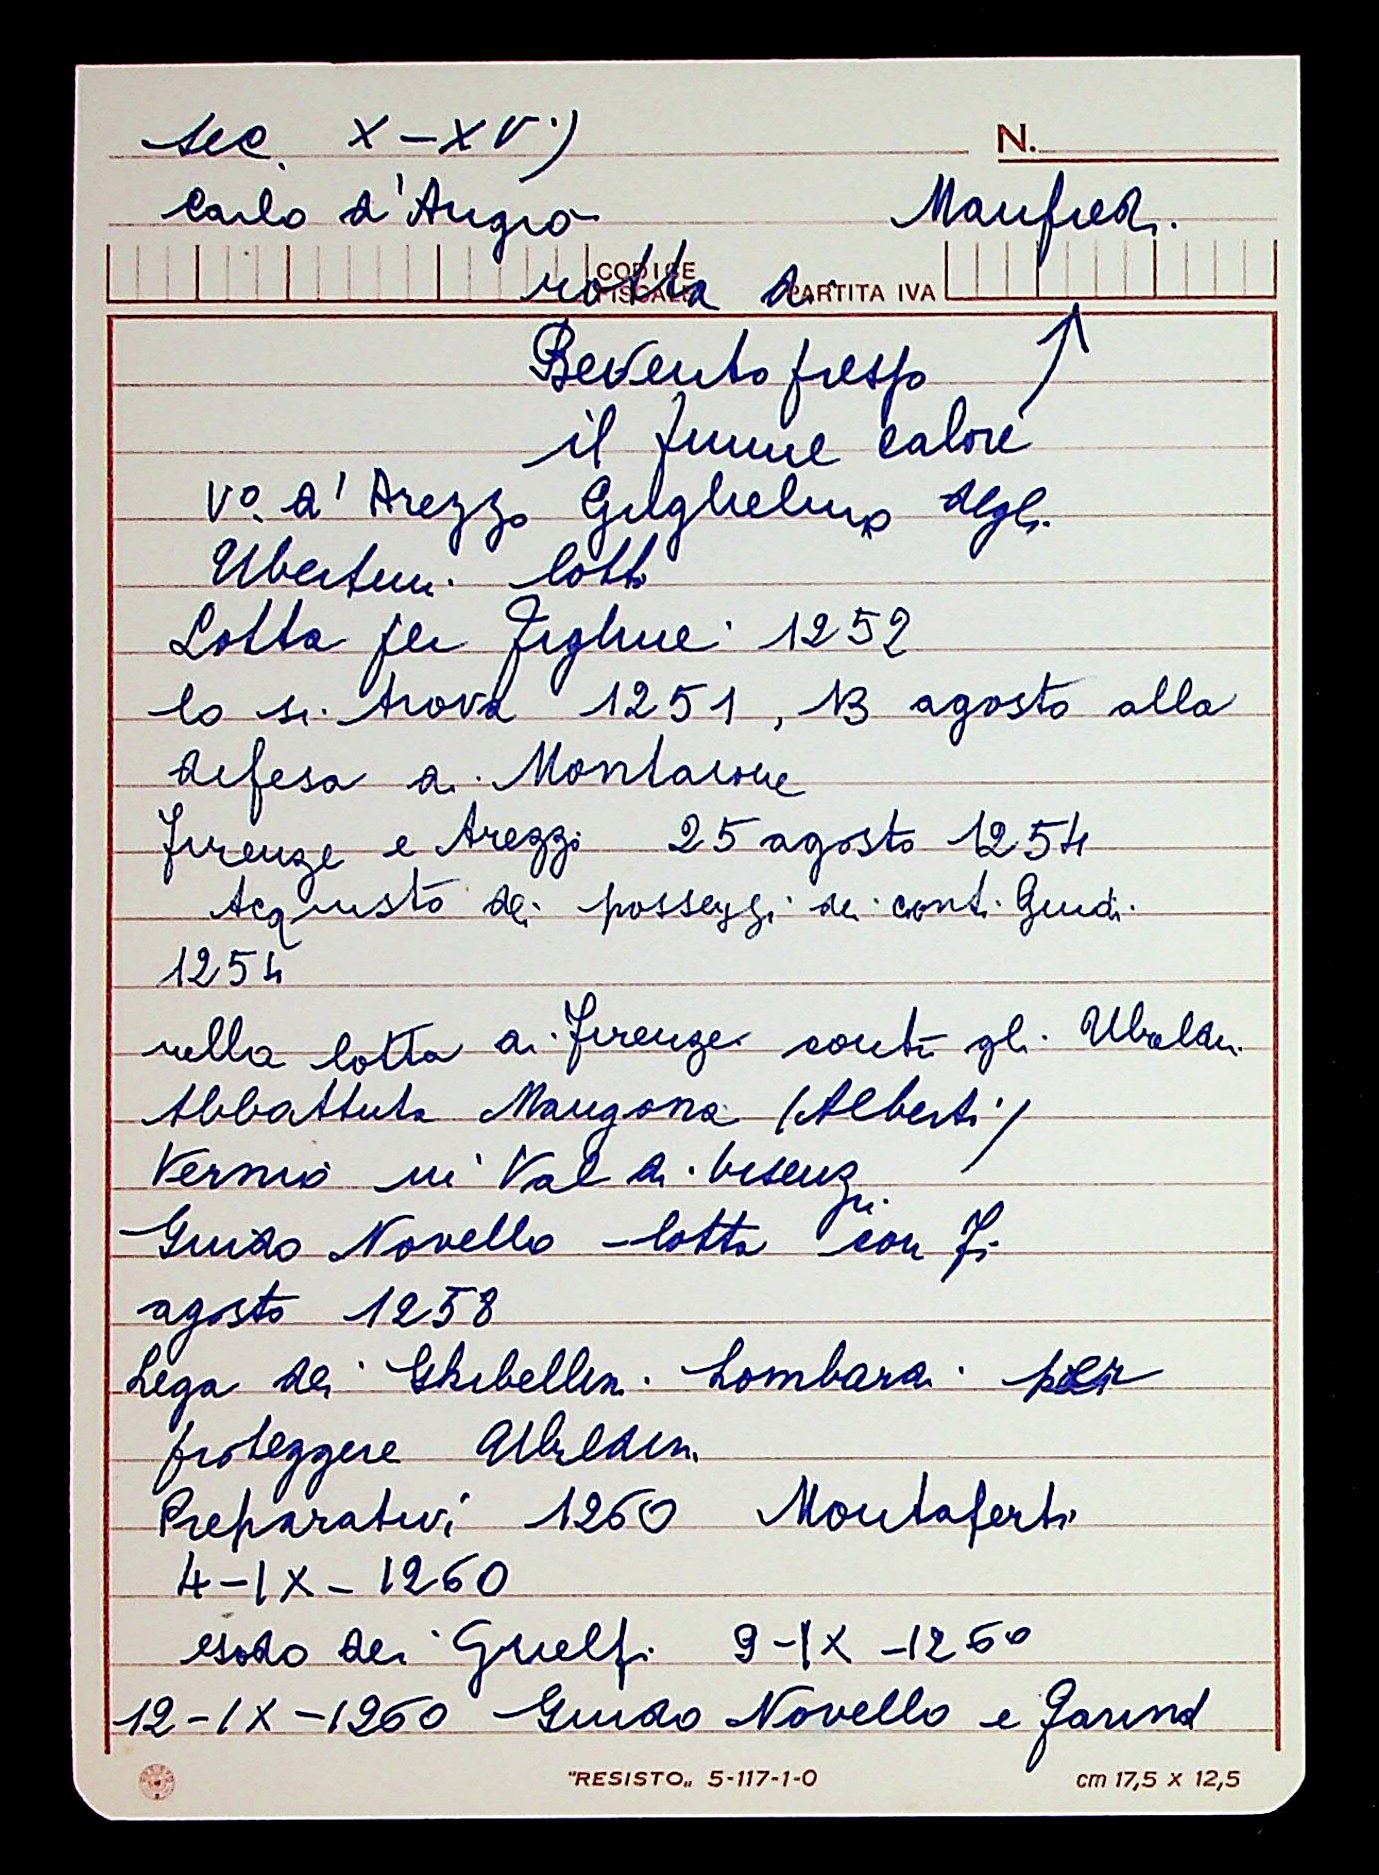 sec. X-XV)
N.
Carlo d'Angiò Manfredi.
CODICE FISCALE PARTITA IVA
rotta di
Bevento presso
il fiume calore
Vo. d'Arezzo Guglielmo degli
Ubertini. lotti
Lotta per Figline 1252
lo si trova 1251, 13 agosto alla
difesa di Montaione
Firenze e Arezzo 25 agosto 1254
Acquisto dei posseggi dei conti Guidi.
1254
nella lotta di Firenze contr gli Ubaldin.
Abbattuta Mangona (Alberti)
Vernio in Val di bisenzi.
Guido Novello - lotta con Fi
agosto 1258
Lega dei Ghibellin. Lombardi per
proteggere Ubaldin.
Preparativi 1260 Montaperti
4-IX-1260
esodo dei Guelfi 9-IX-1260
12-IX-1260 Guido Novello e Farind
"RESISTO„ 5-117-1-0 cm 17,5 x 12,5